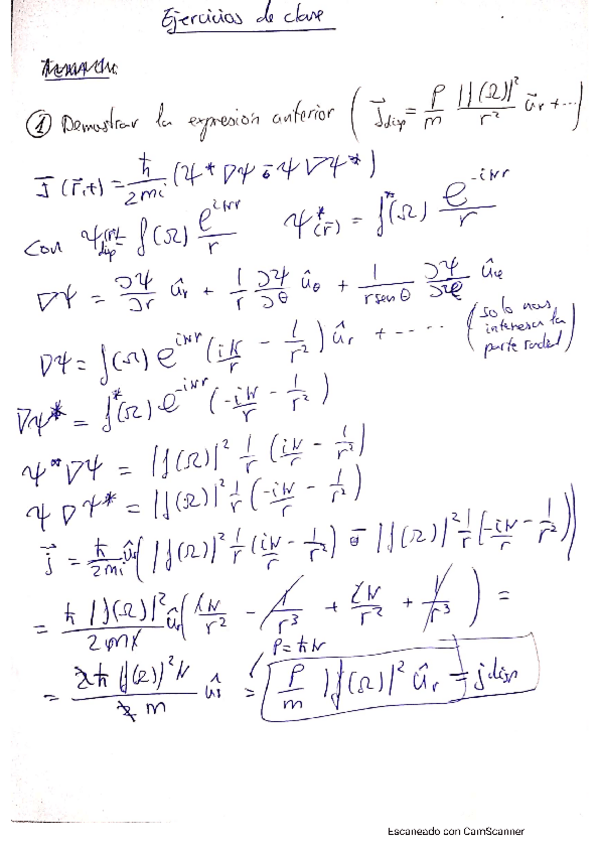 Ejercicios de clase
① Demostrar la expresión anterior ( J⃗disp = P/m |f(Ω)|²/r² u⃗r + ... )
J⃗(r⃗,t) = ħ/2mi (Ψ* ∇Ψ - Ψ ∇Ψ*)
Con Ψdisp(r⃗) = f(Ω) e^{ikr}/r    Ψ*(r⃗) = f*(Ω) e^{-ikr}/r
∇Ψ = ∂Ψ/∂r ûr + 1/r ∂Ψ/∂θ ûθ + 1/(r sen θ) ∂Ψ/∂φ ûφ
∇Ψ = f(Ω) e^{ikr} (ik/r - 1/r²) ûr + ..... (solo nos interesa la parte radial)
∇Ψ* = f*(Ω) e^{-ikr} (-ik/r - 1/r²)
Ψ* ∇Ψ = |f(Ω)|² 1/r (ik/r - 1/r²)
Ψ ∇Ψ* = |f(Ω)|² 1/r (-ik/r - 1/r²)
j⃗ = ħ/2mi ûr (|f(Ω)|² 1/r (ik/r - 1/r²) - |f(Ω)|² 1/r (-ik/r - 1/r²))
= ħ |f(Ω)|²/2mi ûr (ik/r² - 1/r³ + ik/r² + 1/r³) =
P = ħk
= 2ħ |f(Ω)|² k/2m ûr = P/m |f(Ω)|² ûr = jdisp
Escaneado con CamScanner